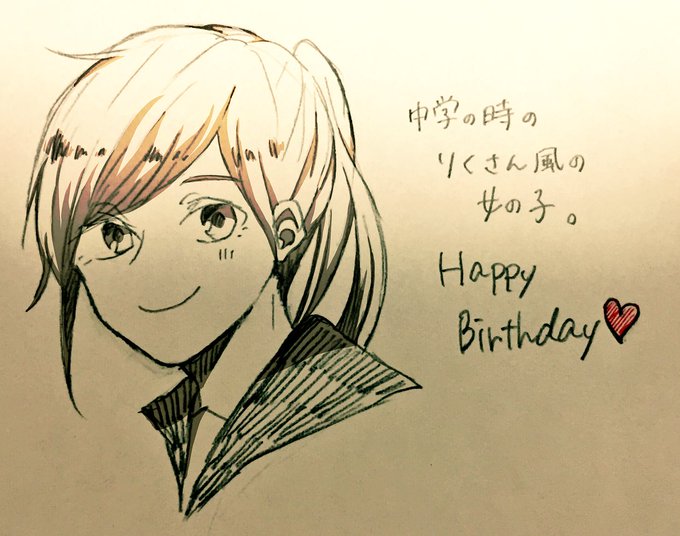 中学の時の
りくさん風の
女の子。
Happy
Birthday